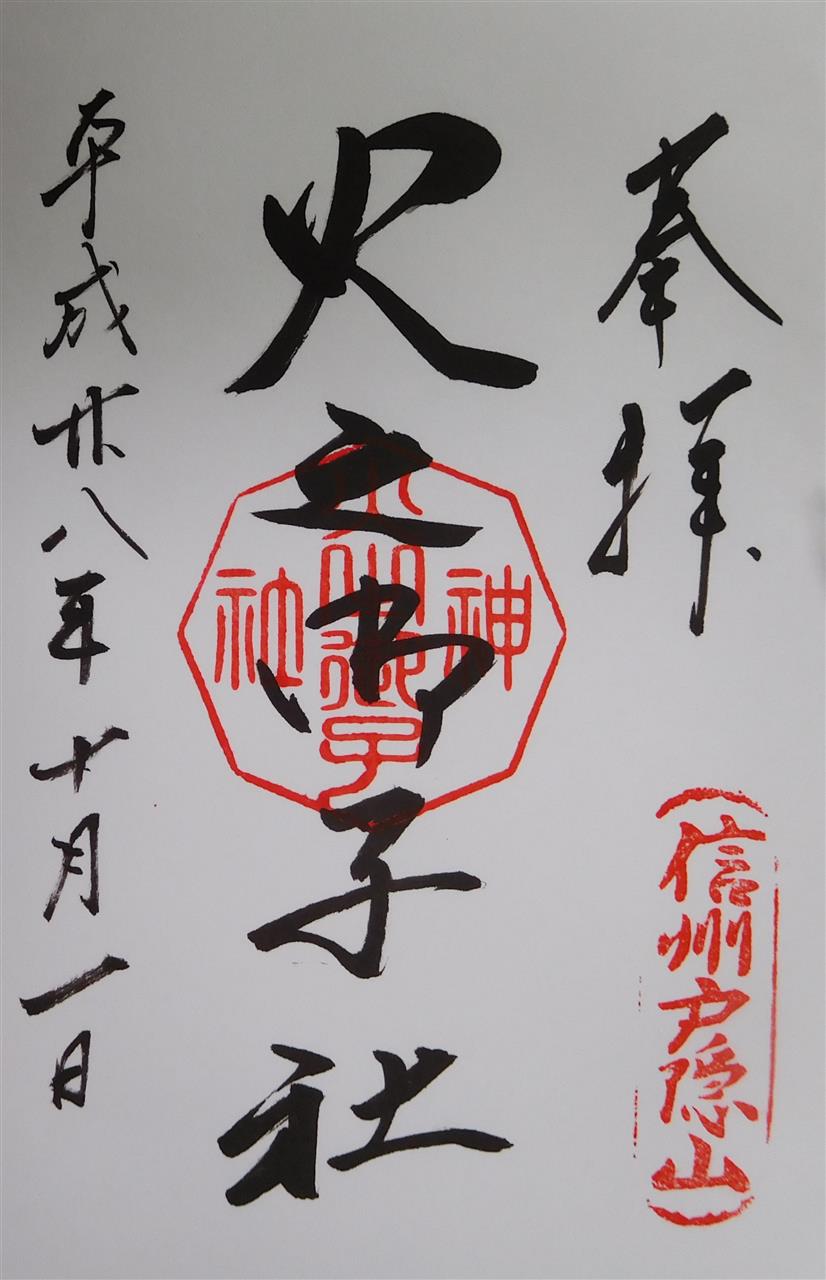 奉拝
信州戸隠山
火之御子社
神
火之御子
社
平成廿八年十月一日